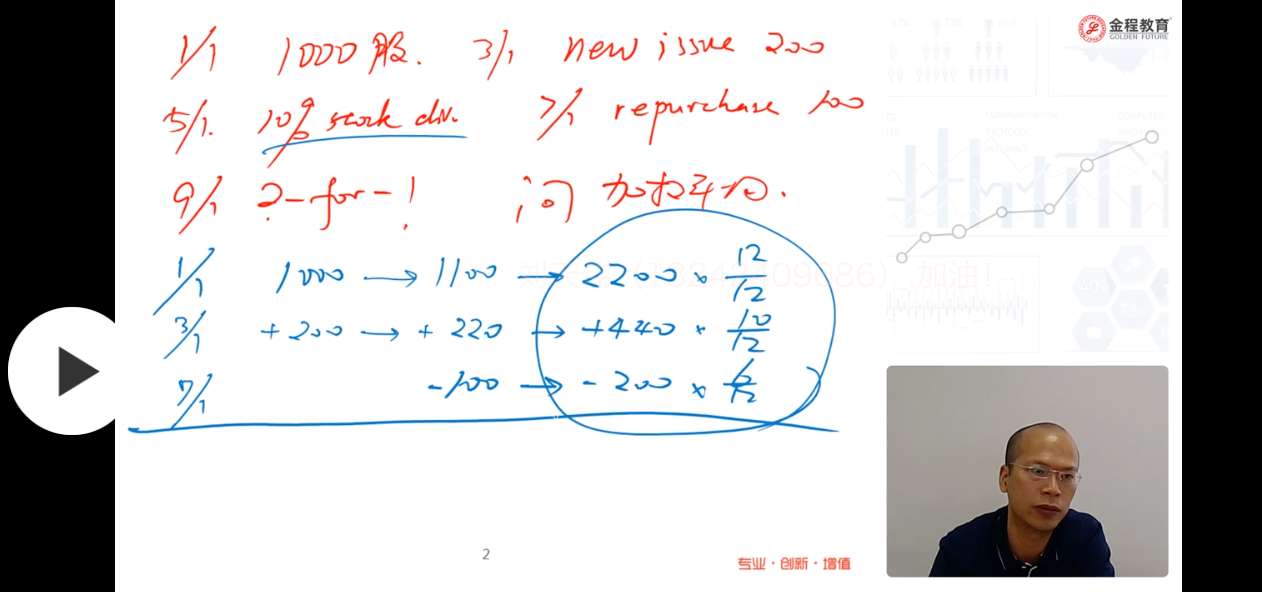 金程教育
GOLDEN FUTURE
1/1 1000股. 3/1 new issue 200
5/1. 10% stock div. 7/1 repurchase 100
9/1 2-for-1 问 加权平均.
1/1 1000 → 1100 → 2200 × 12/12
3/1 +200 → +220 → +440 × 10/12
7/1 -100 → -200 × 6/12
加油!
2
专业·创新·增值